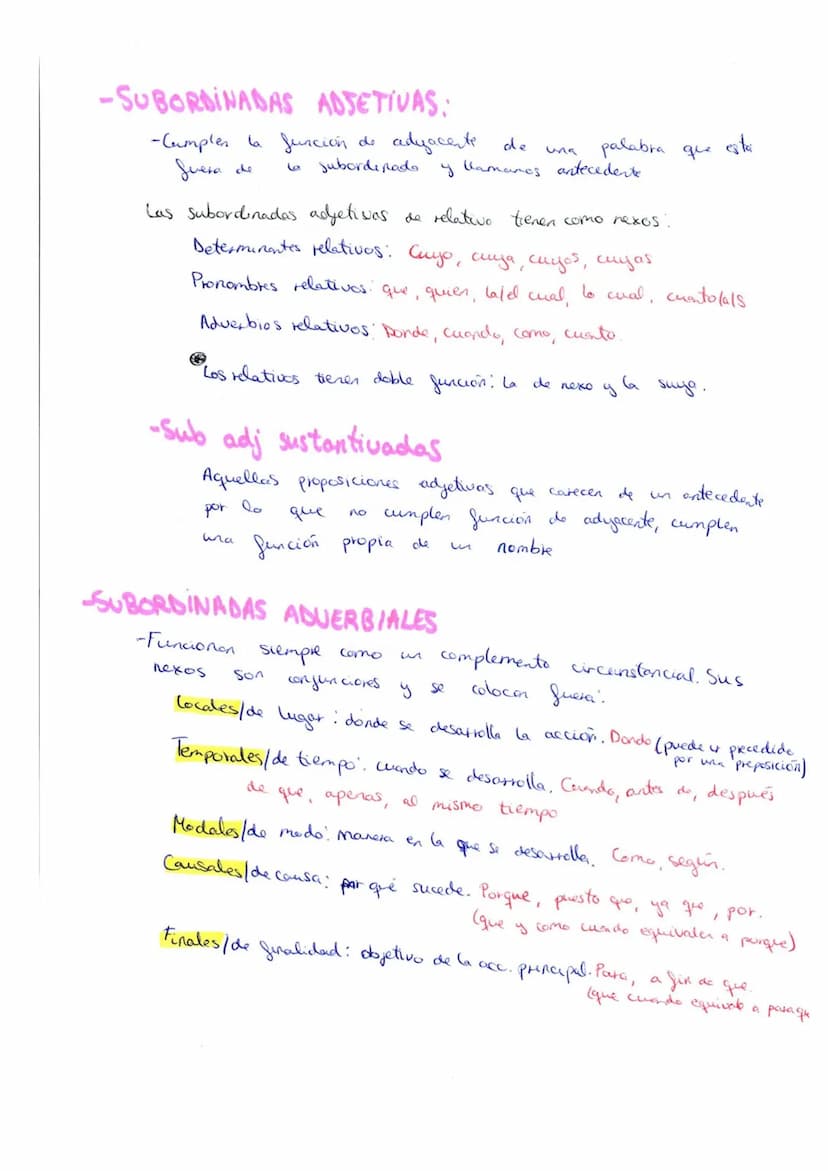 -SUBORDINADAS ADJETIVAS:
-Cumplen la función de adyacente de una palabra que está
fuera de la subordinada y llamamos antecedente
Las subordinadas adjetivas de relativo tienen como nexos:
Determinantes relativos: Cuyo, cuya, cuyos, cuyas
Pronombres relativos: que, quien, la/el cual, lo cual, cuanto/a/s
Adverbios relativos: Donde, cuando, como, cuanto.
Los relativos tienen doble función: la de nexo y la suya.
-Sub adj sustantivadas
Aquellas proposiciones adjetivas que carecen de un antecedente
por lo que no cumplen función de adyacente, cumplen
una función propia de un nombre
-SUBORDINADAS ADVERBIALES
-Funcionan siempre como un complemento circunstancial. Sus
nexos son conjunciones y se colocan fuera:
Locales/de lugar: donde se desarrolla la acción. Donde (puede ir precedida
por una preposición)
Temporales/de tiempo: cuando se desarrolla. Cuando, antes de, después
de que, apenas, al mismo tiempo
Modales/de modo: Manera en la que se desarrolla. Como, según.
Causales/de causa: por qué sucede. Porque, puesto que, ya que, por.
(que y como cuando equivalen a porque)
Finales/de finalidad: objetivo de la acc. principal. Para, a fin de que.
(que cuando equivale a para qu